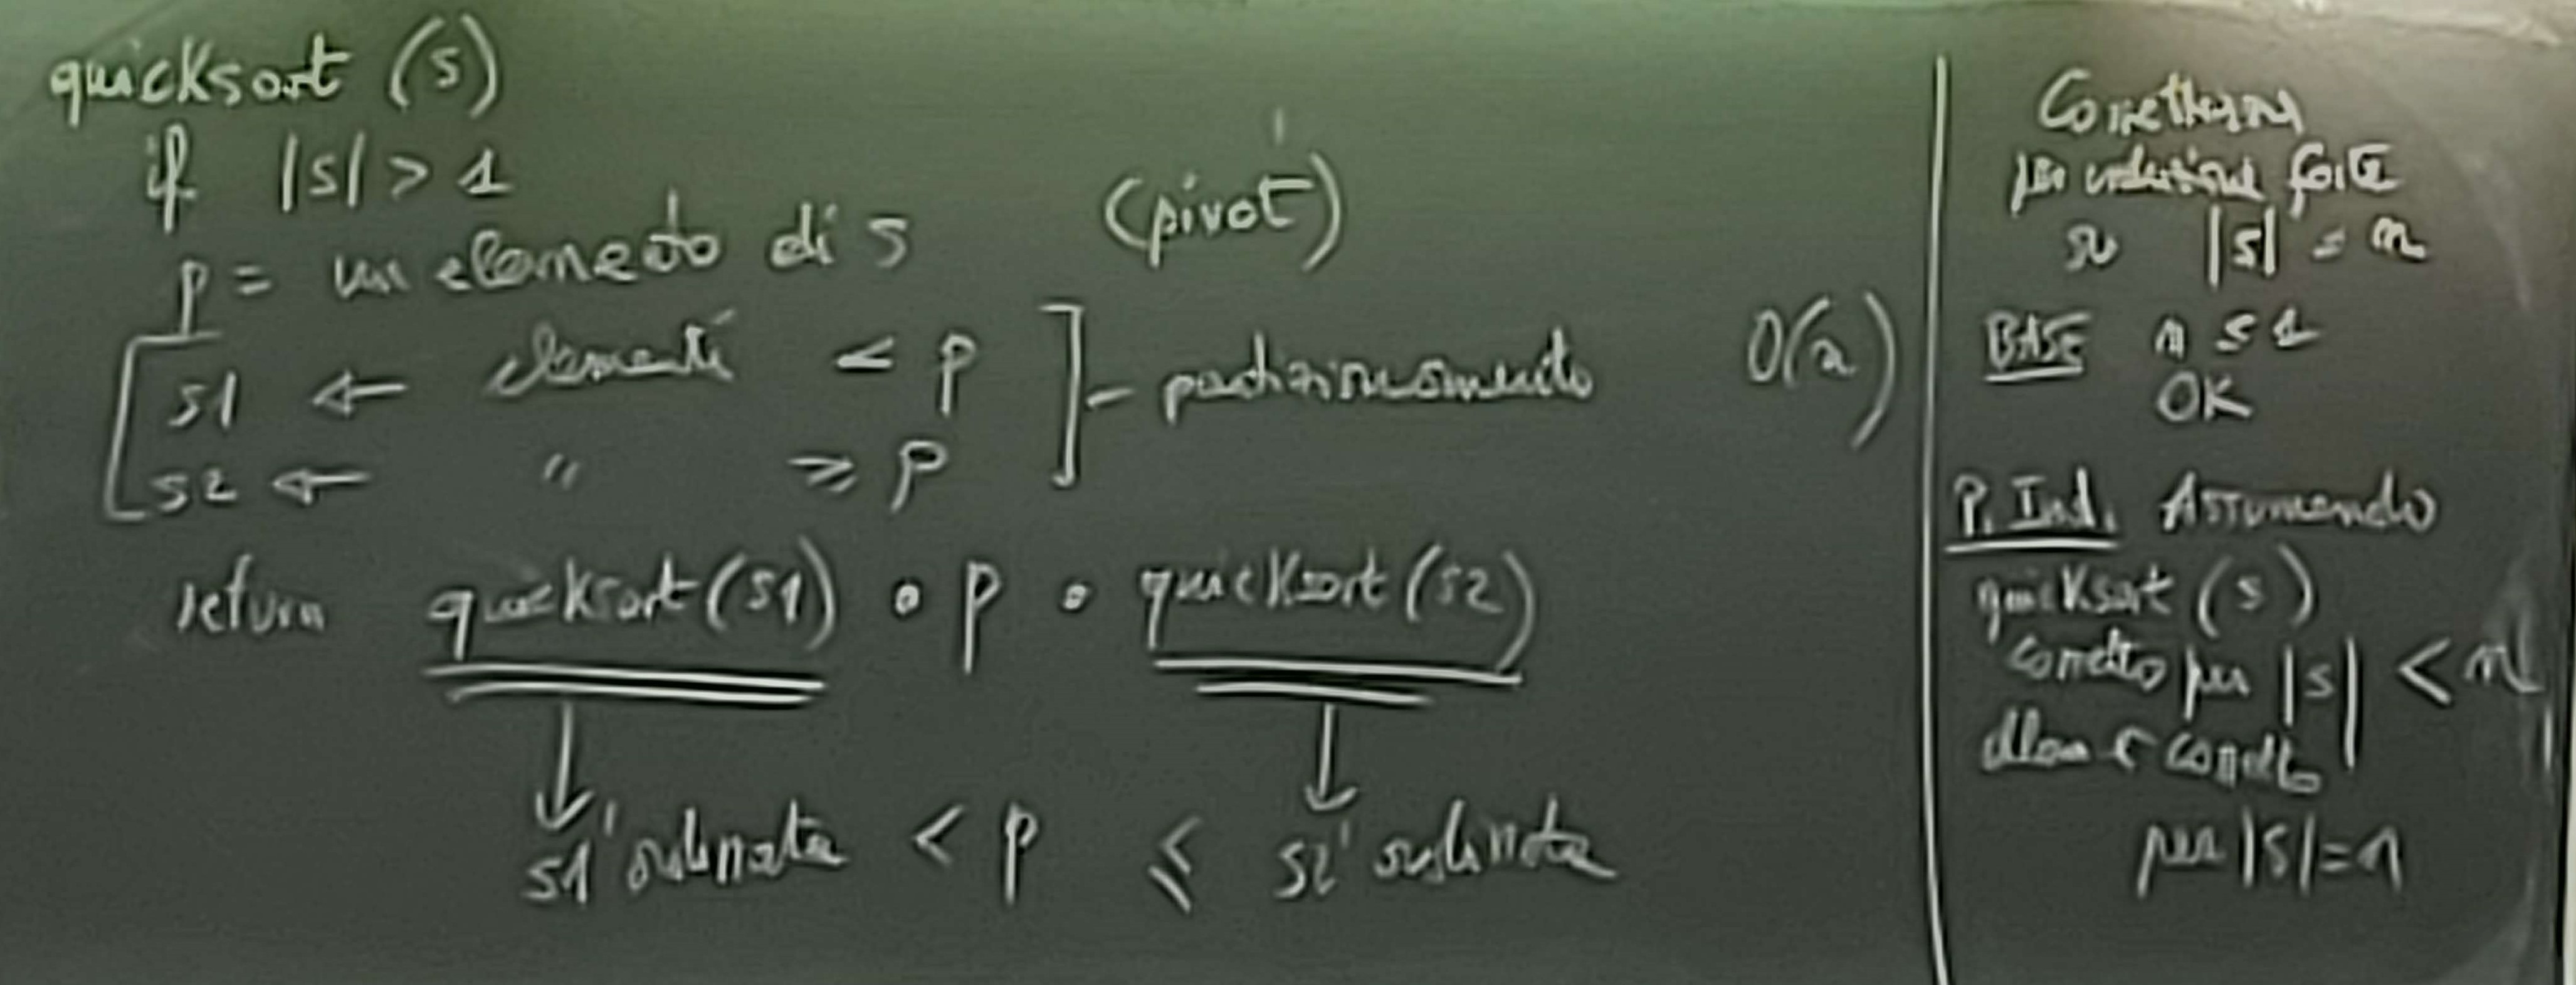 quicksort (s)
if |s| > 1
p = un elemento di s (pivot)
s1 ← elementi < p
s2 ← " ≥ p
partizionamento O(n)
return quicksort(s1) • p • quicksort(s2)
s1' ordinata < p ≤ s2' ordinata
Correttezza
per induzione forte
su |s| = n
BASE n ≤ 1
OK
P. Ind. Assumendo
quicksort (s)
corretto per |s| < n
allora è corretto
per |s| = n